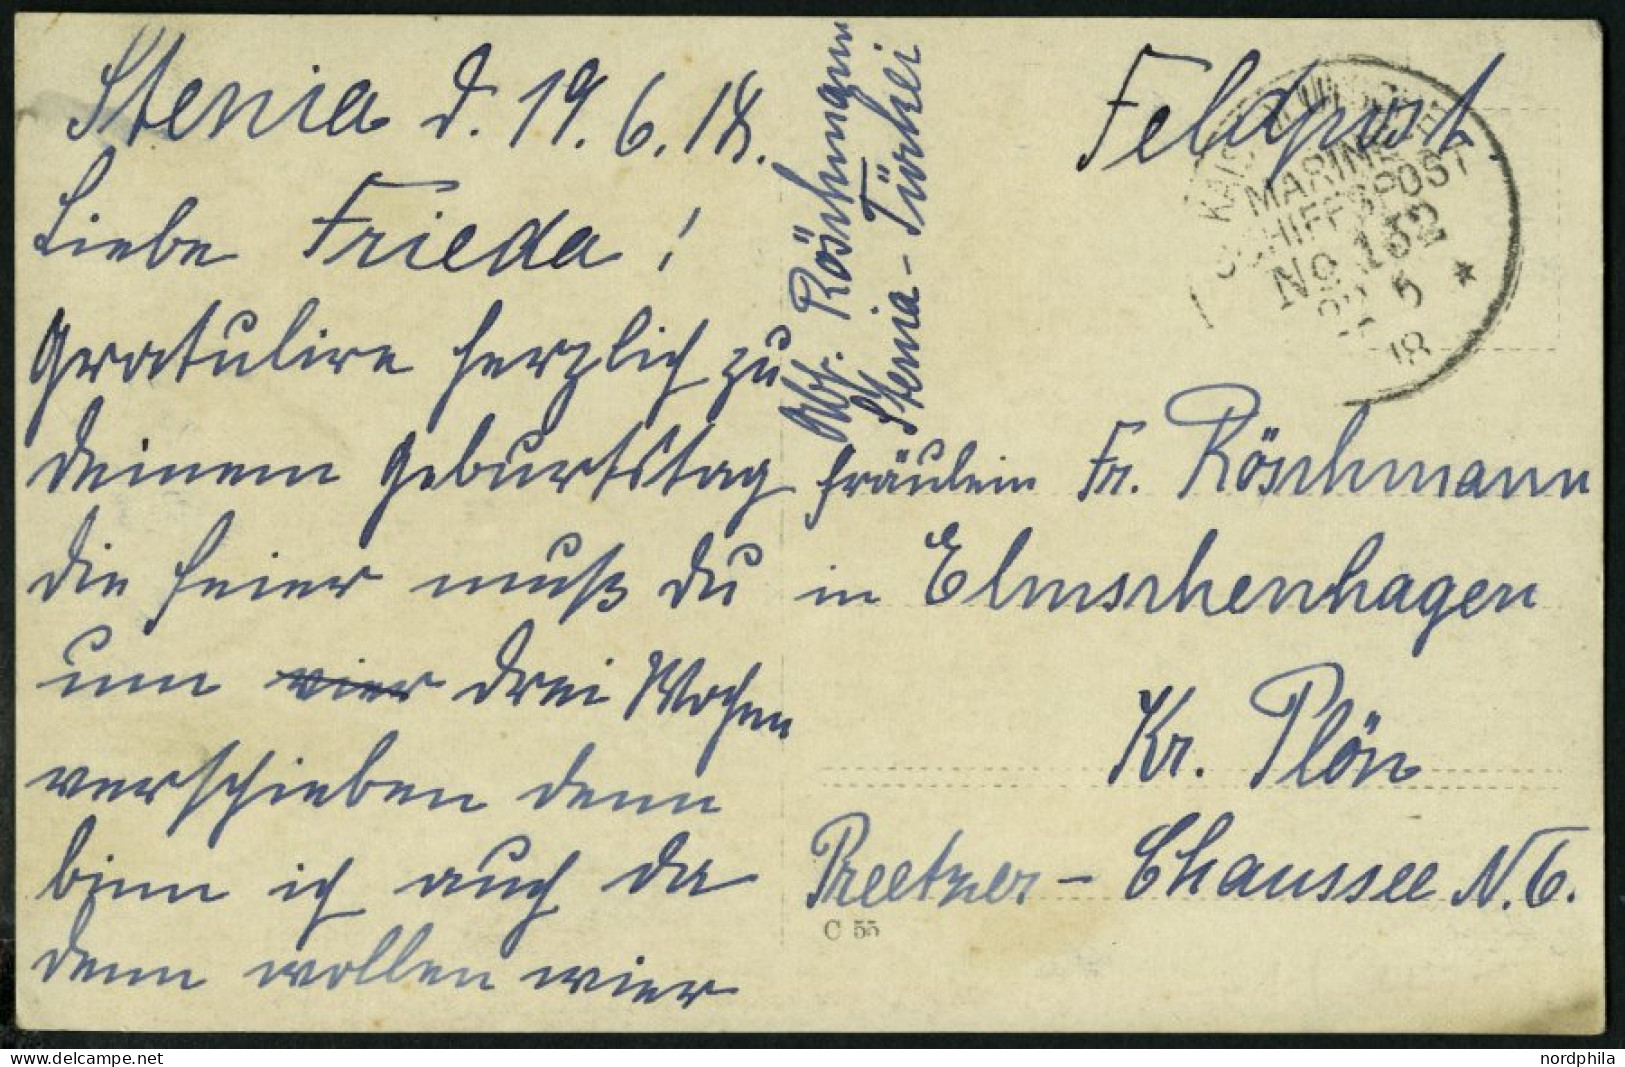 Stenia d. 19. 6. 18.
Liebe Frieda!
Gratulire herzlich zu
deinem Geburtstag
die feier muß du
um vier drei Wochen
verschieben denn
binn ich auch da
denn wollen wier
Abs. Röschmann
Stenia - Türkei
Feldpost.
MARINE
SCHIFFSPOST
No 132
5
18
Fräulein Fr. Röschmann
in Elmschenhagen
Kr. Plön
Preetzer - Chaussee N. 6.
C 55
nordphila